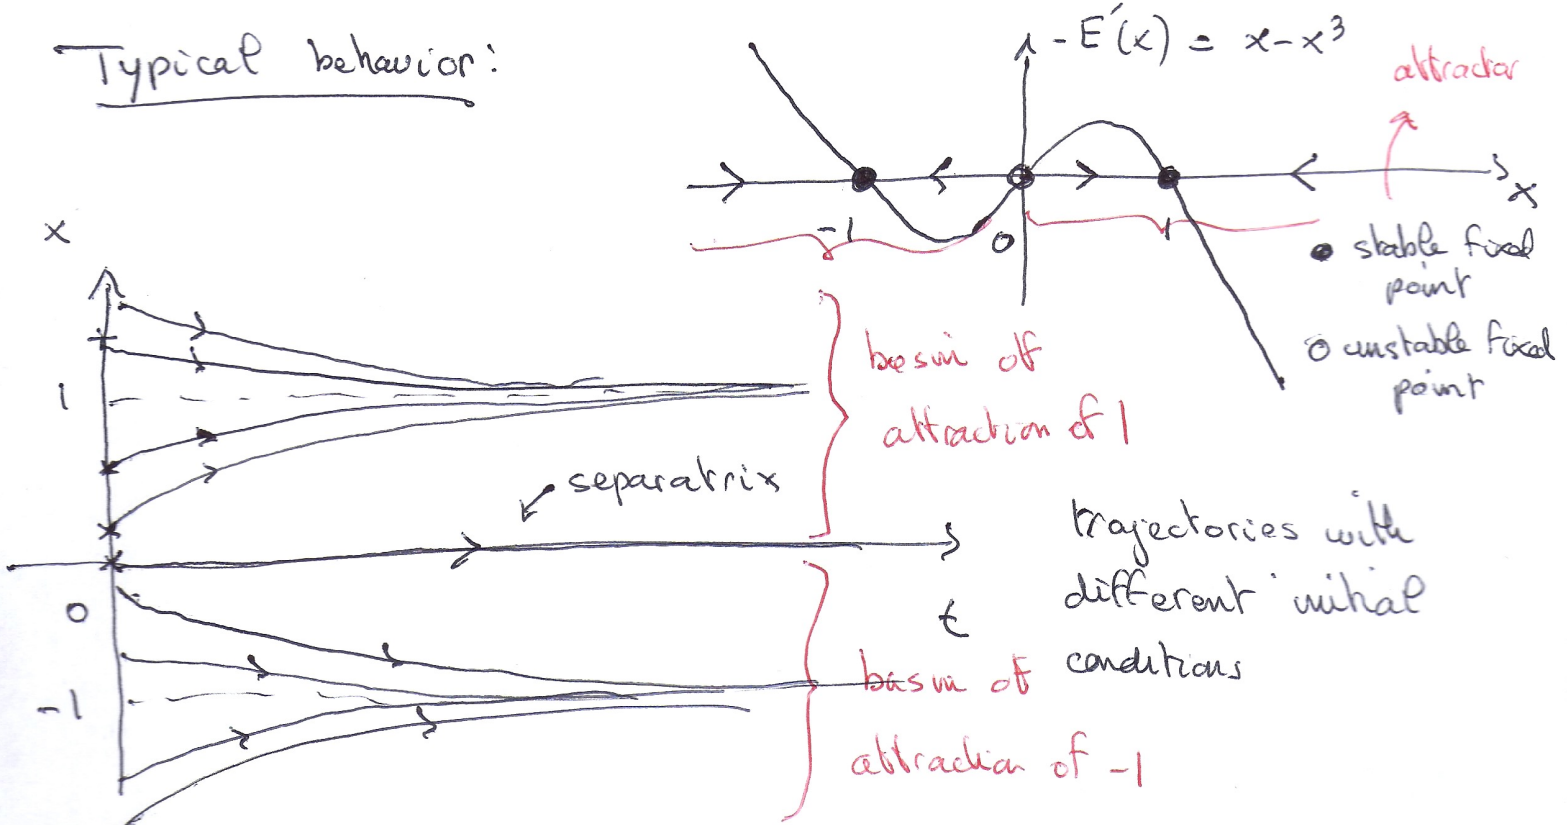 Typical behavior:
-E'(x) = x-x³
attractor
x
-1
0
1
● stable fixed
point
○ unstable fixed
point
x
1
basin of
attraction of 1
separatrix
trajectories with
different initial
conditions
0
t
-1
basin of
attraction of -1